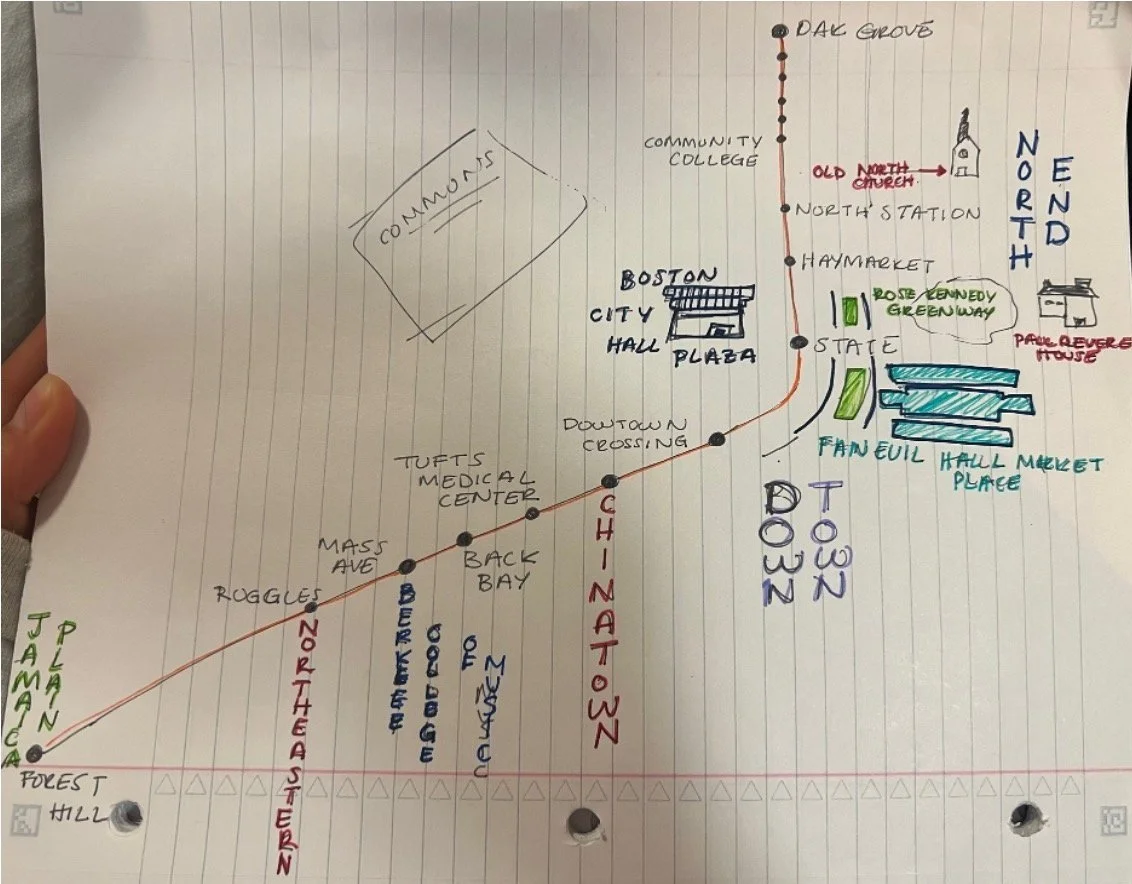 OAK GROVE
COMMUNITY
COLLEGE
COMMONS
OLD NORTH
CHURCH
NORTH
END
NORTH STATION
HAYMARKET
BOSTON
CITY
HALL
PLAZA
ROSE KENNEDY
GREENWAY
STATE
PAUL REVERE
HOUSE
DOWTOWN
CROSSING
FANEUIL HALL MARKET
PLACE
TUFTS
MEDICAL
CENTER
CHINATOWN
DOWN
TOWN
MASS
AVE
BACK
BAY
RUGGLES
BERKLEE
COLLEGE
OF
NORTHEASTERN
JAMAICA
PLAIN
FOREST
HILL